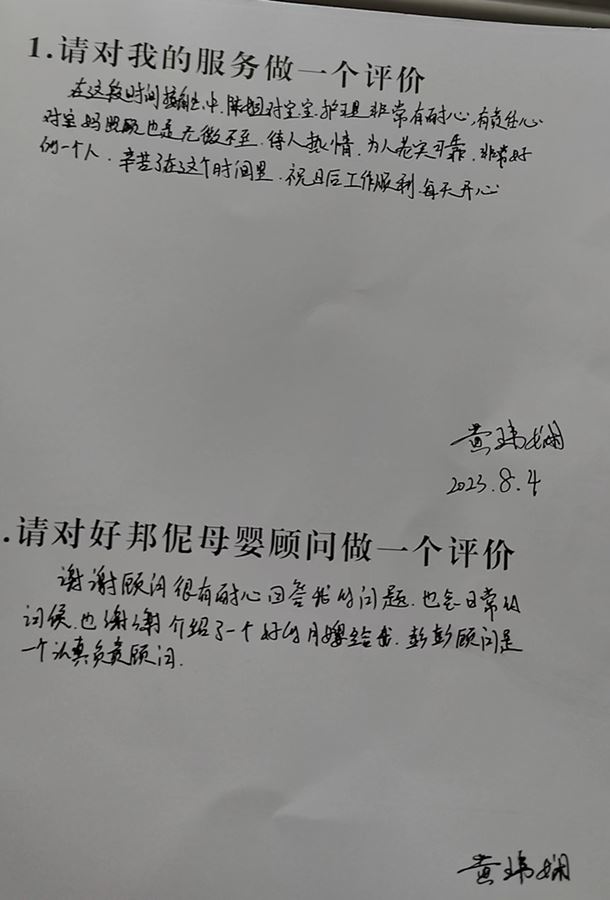 1.请对我的服务做一个评价
在这段时间接触中,陈姐对宝宝护理是非常有耐心,有责任心
对宝妈照顾也是无微不至.待人热情,为人老实可靠.非常好
的一个人.辛苦了在这个时间里.祝日后工作顺利.每天开心
黄玮娴
2023.8.4
.请对好邦伲母婴顾问做一个评价
谢谢顾问很有耐心回答我的问题.也会日常的
问候.也谢谢介绍了一个好的月嫂给我.彭彭顾问是
一个认真负责顾问.
黄玮娴